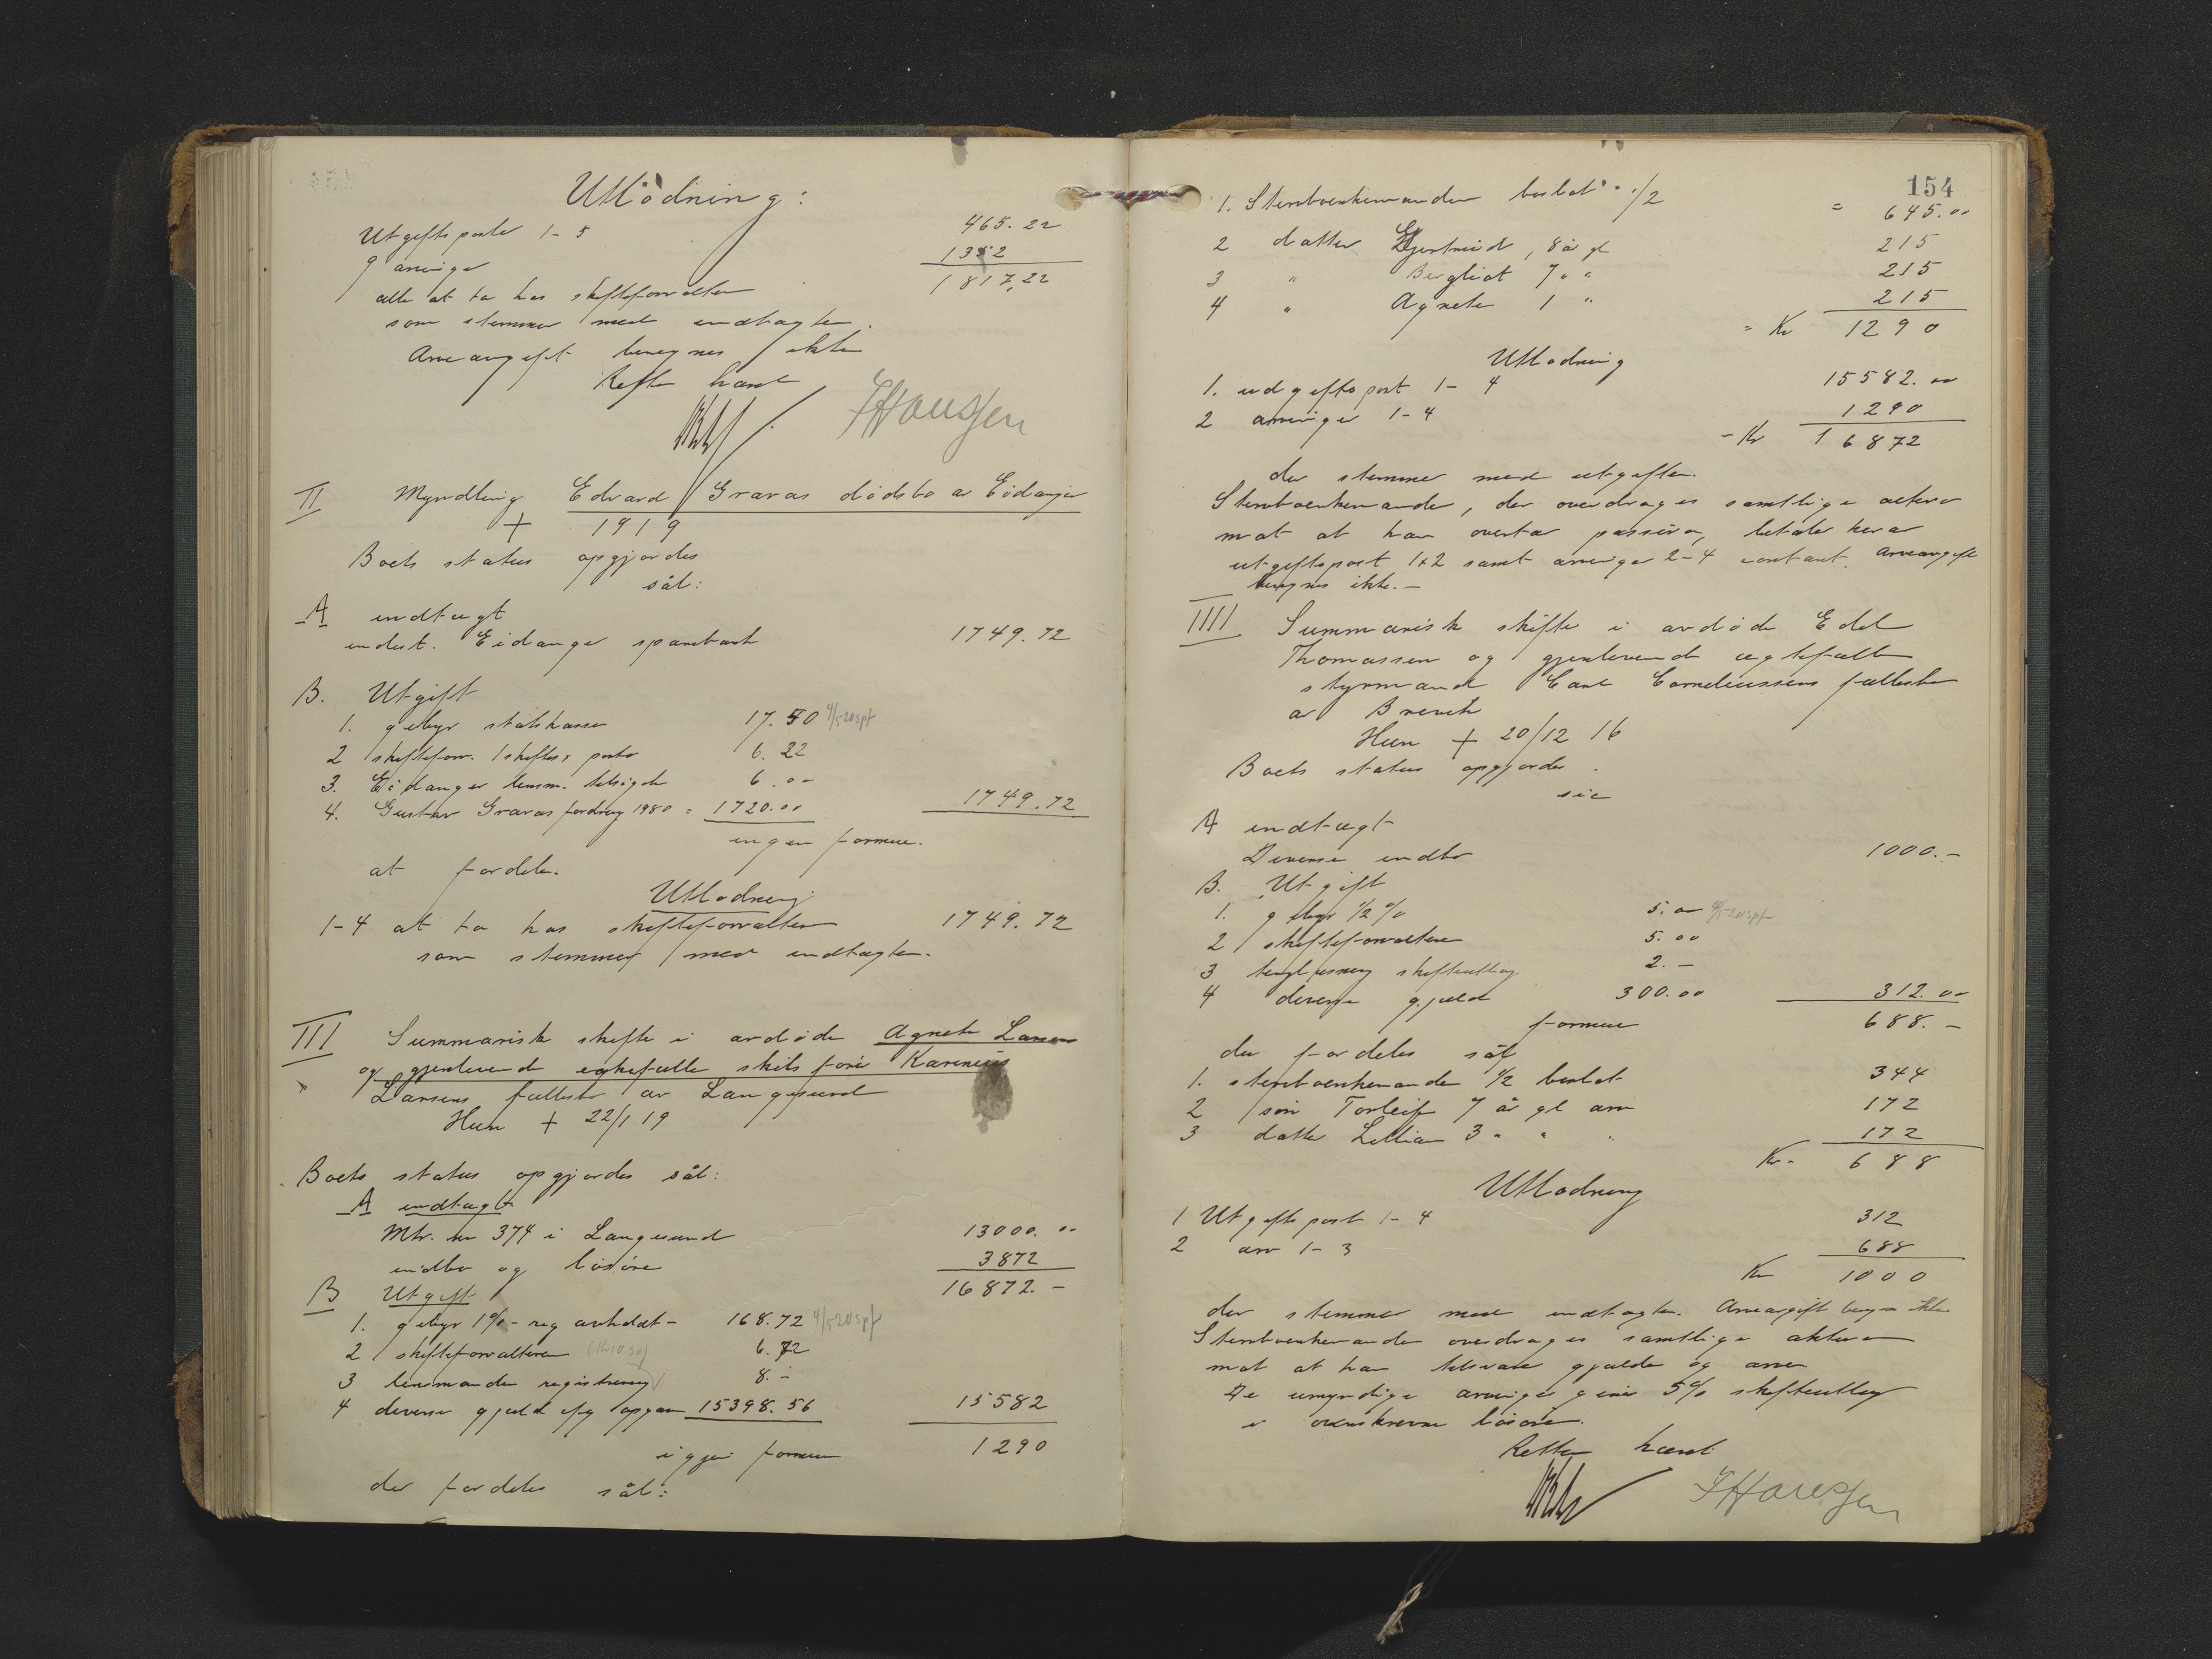 Utlodning:
Utgiftsposter 1-5 465.22
9 arvinger 1352
1817,22
alle at ta hos skifteforvalteren
som stemmer med indtægten.
Arveavgift beregnes ikke
Retten hævet
JHHanssen
II Myndling Edvard Gravas dødsbo av Eidanger
+ 1919
Boets status opgjordes
sål:
A indtægt
indest. Eidanger sparebank 1749.72
B. Utgift
1. gebyr statskassen 17.50 4/5 20 spf
2 skifteforv. skiftes. porto 6.22
3. Eidanger lensm. tilsigelse 6.00
4. Gustav Gravas fordring 1980 = 1720.00 1749.72
ingen formue.
at fordele.
Utlodning
1-4 at ta hos skifteforvalteren 1749.72
som stemmer med indtægten.
III Summarisk skifte i avdøde Agnete Larsen
og gjenlevende egtefælle skibsfører Karenius
Larsens fællesbo av Langesund
Hun + 22/1 19
Boets status opgjordes sål:
A indtægt
Mtr. nr 374 i Langesund 13000.00
indbo og løsøre 3872
16872.-
B Utgift
1. gebyr 1% - reg avholdt - 168.72 4/5 20 spf
2 skifteforvalteren 6.72
3 lensmanden registrering 8.-
4 diverse gjæld ifg opgave 15398.56 15582
igjen formue 1290
der fordeles sål:
154
1. Sterbvenkemanden boslod 1/2 = 645.00
2 datter Gjertrud, 8 år gl 215
3 " Bergliot 7 " " 215
4 " Agnete 1 " 215
= Kr 1290
Utlodning
1. udgiftspost 1-4 15582.00
2 arvinger 1-4 1290
- Kr 16872
der stemmer med utgiften.
Sterbvenkemanden, der overdrages samtlige activa
mot at han overtar passiva, betaler herav
utgiftspost 1+2 samt arvinger 2-4 contant. Arveavgift
beregnes ikke.-
IIII Summarisk skifte i avdøde Edel
Thomassen og gjenlevende ægtefælle
styrmand Carl Corneliussens fællesbo
av Brevik
Hun + 20/12 16
Boets status opgjordes.
sie
A indtægt
Diverse indbo 1000.-
B. Utgift
1. gebyr 1/2 % 5.00 4/5 20 spf
2 skifteforvalteren 5.00
3 tinglæsning skifteutlæg 2.-
4 diverse gjæld 300.00 312.00
formue 688.-
der fordeles sål
1. sterbvenkemanden 1/2 boslod 344
2 søn Torleif 7 år gl arv 172
3 datter Lillian 3 " " " 172
Kr - 688
Utlodning
1 Utgiftspost 1-4 312
2 arv 1-3 688
Kr 1000
der stemmer med indtægten. Arveavgift beregnes ikke
Sterbvenkemanden overdrages samtlige aktiva
mot at han tilsvarer gjælden og arven
De umyndige arvinger gives 5% skifteutlæg
i ovenskrevne løsøre.
Retten hævet
JHHanssen